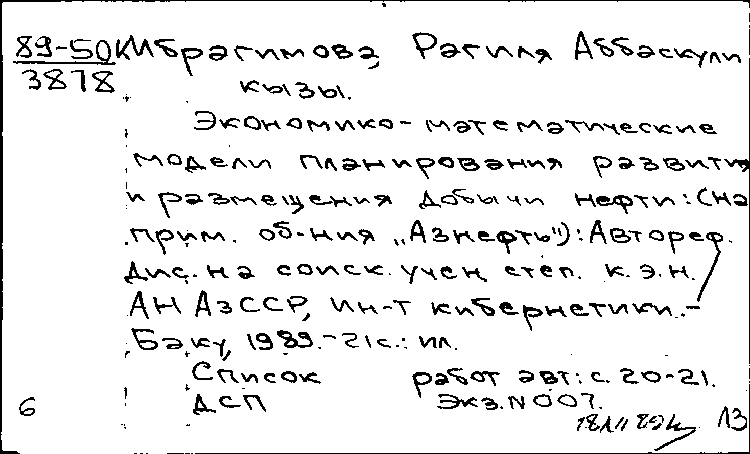 89-50К Ибрагимова, Рагиля Аббаскули
3878 кызы.
Экономико-математические
модели планирования развития
и размещения добычи нефти: (на
прим. об-ния „Азнефть"): Автореф.
дис. на соиск. учен. степ. к.э.н.
АН АзССР, Ин-т кибернетики. -
Баку, 1989.-21с.: ил.
Список работ авт: с. 20-21.
6 ДСП Экз. N 007.